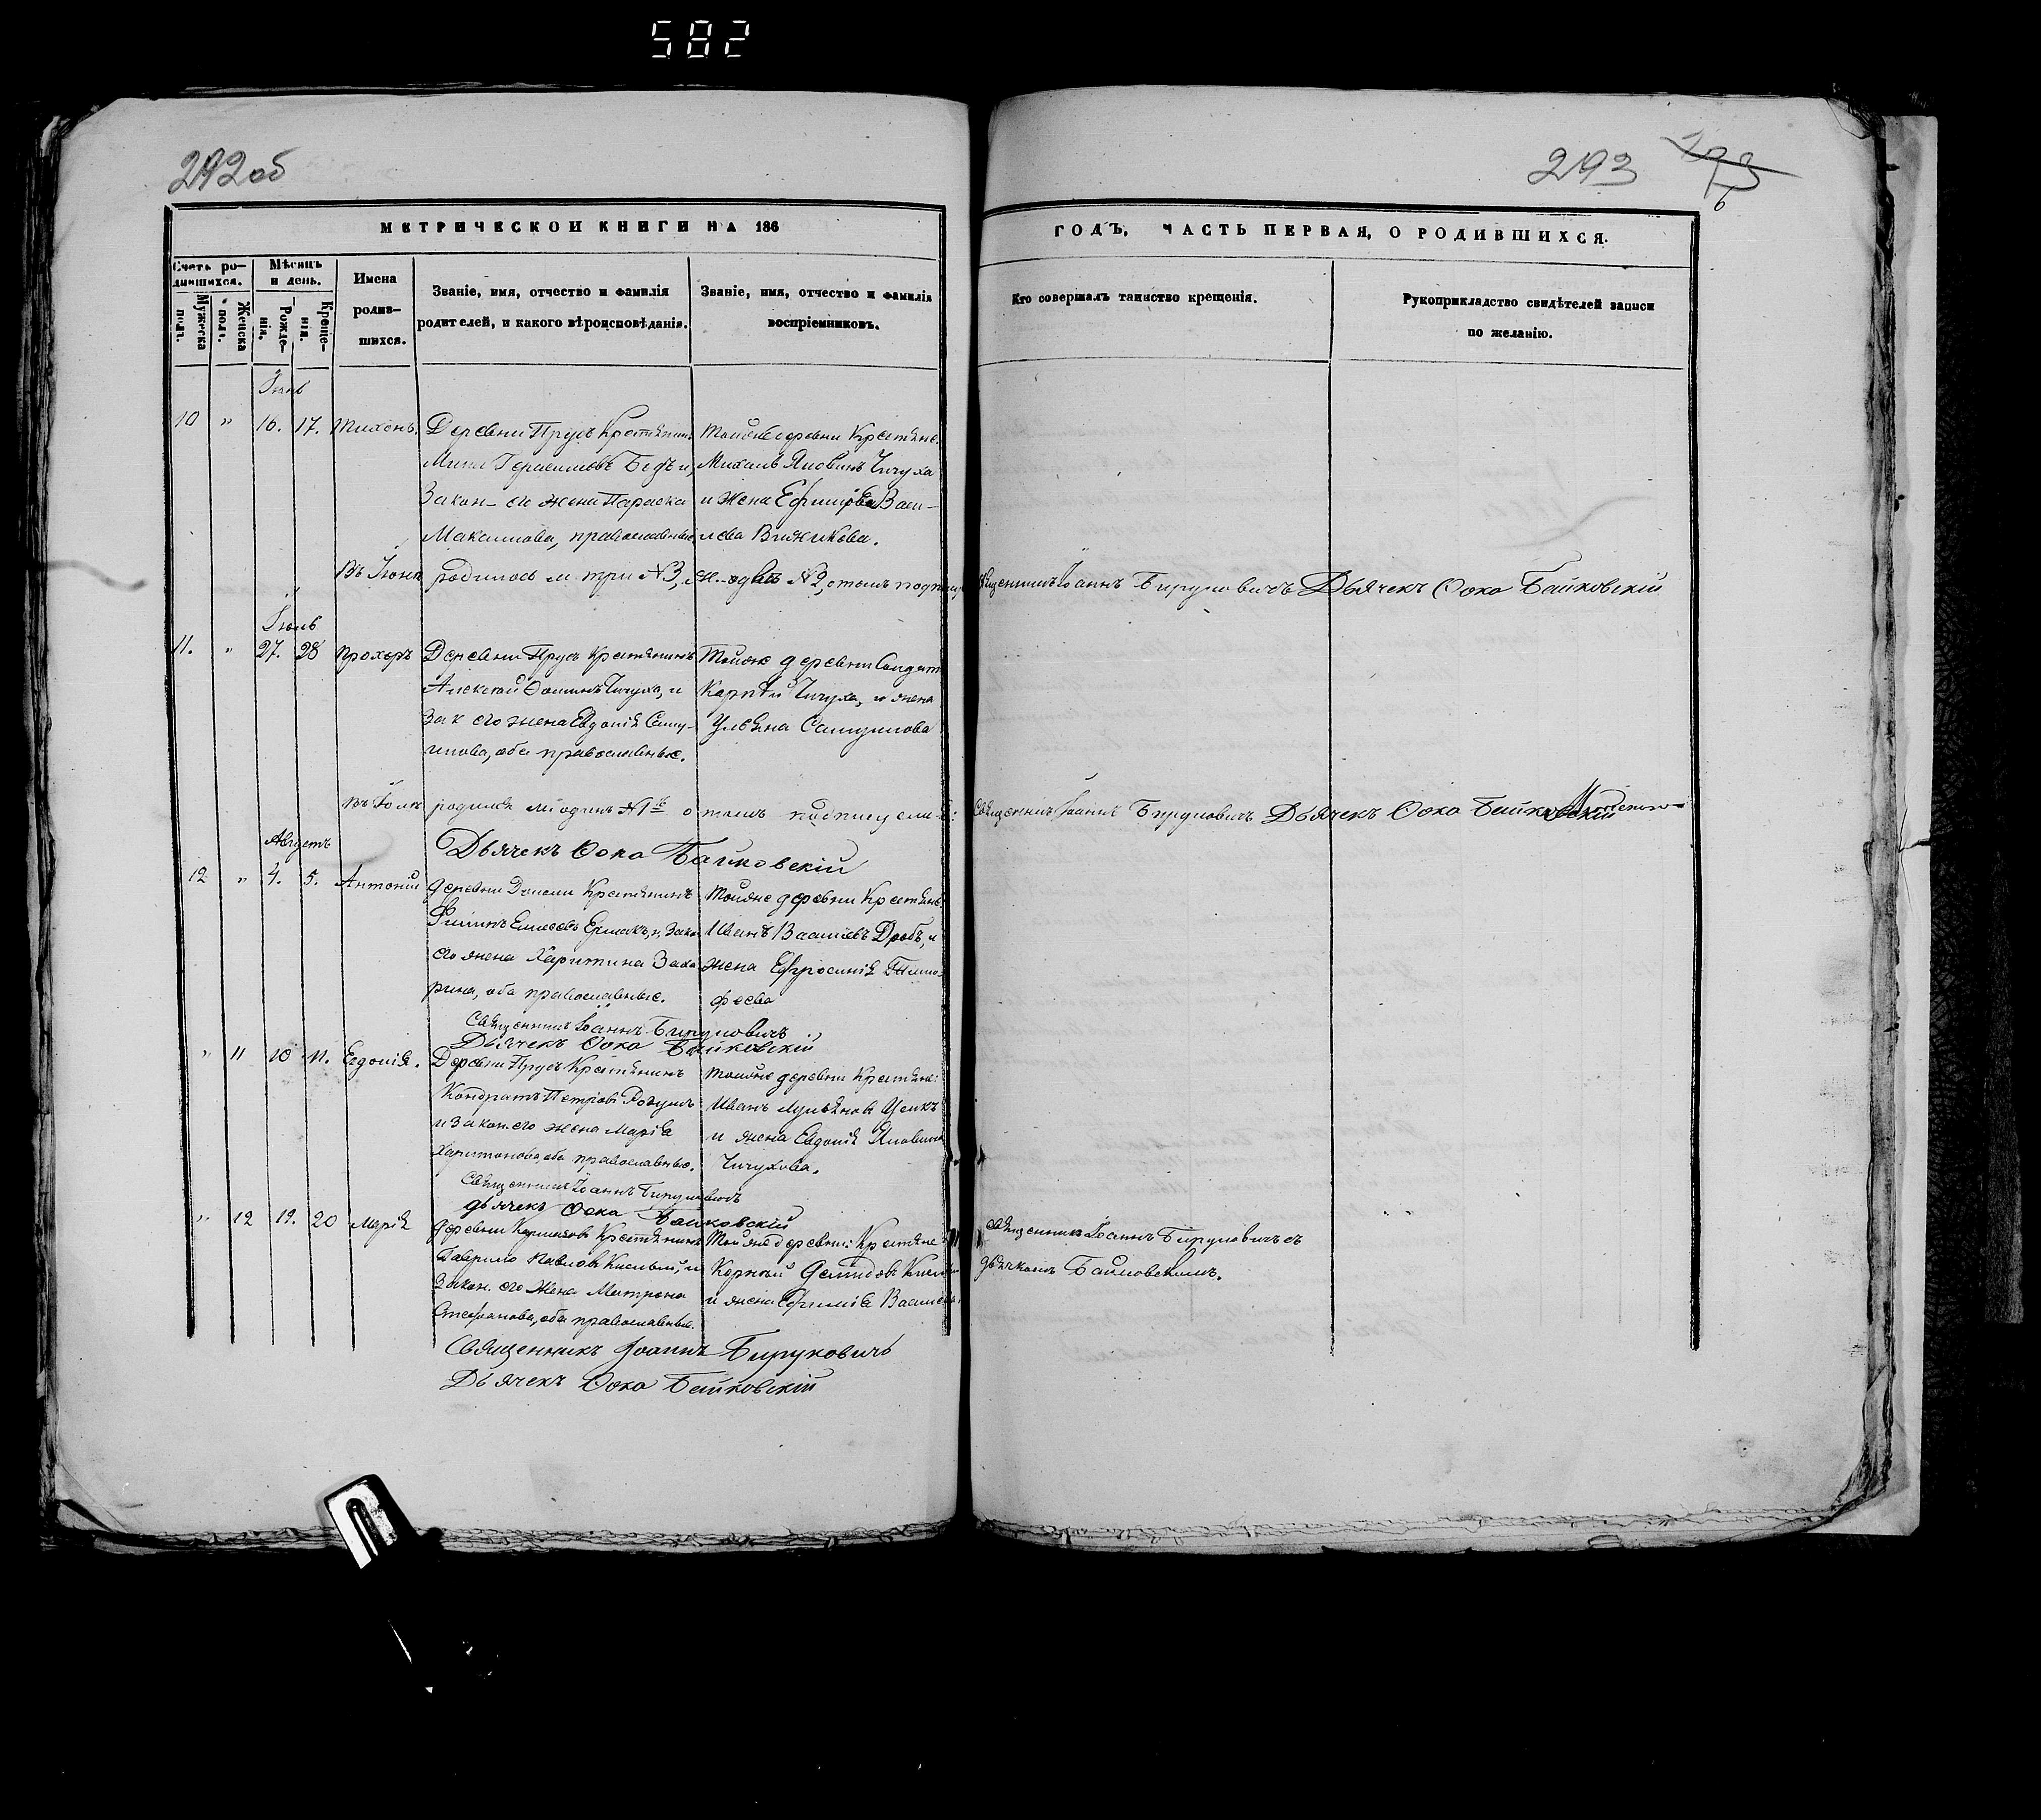 582
292об
293
МЕТРИЧЕСКОЙ КНИГИ НА 186
ГОДЪ, ЧАСТЬ ПЕРВАЯ, О РОДИВШИХСЯ.
Счетъ родившихся.
Мужеска полъ.
Женска полъ.
Мѣсяцъ и день.
Рожденія.
Крещенія.
Имена
родив-
шихся.
Званіе, имя, отчество и фамилія
родителей, и какого вѣроисповѣданія.
Званіе, имя, отчество и фамилія
воспріемниковъ.
Кто совершалъ таинство крещенія.
Рукоприкладство свидѣтелей записи
по желанію.
Іюнь
10 " 16. 17. Тихонъ.
Деревни Прусъ Крестьянинъ
Мина Герасимовъ
Закон- его жена Параска
Максимова, православные
Тойже деревни Крестьяне:
Михаилъ Чичуха
и жена Васи-
льева
Въ Іюнѣ родилось м. три № 3,
Священникъ Іоаннъ Бируковичъ
Дьячекъ Ѳока Байковскій
Іюль
11. " 27. 28 Прохоръ
Деревни Прусъ Крестьянинъ
Алексѣй Ѳоминъ Чичуха, и
Зак его жена Евдокія Саму-
илова, оба православные.
Тойже деревни Солдатъ
Карпъ Чичуха, и жена
Ульяна Самуилова
Въ Іюлѣ родился м. одинъ № 1 о томъ подписуемся:
Священникъ Іоаннъ Бируковичъ
Дьячекъ Ѳока Байковскій
Августъ
Дьячекъ Ѳока Байковскій
12 " 4. 5. Антоній
деревни Крестьянинъ
Ермакъ, и Закон
его жена Харитина Заха-
рина, оба православные.
Тойже деревни Крестьяне:
Иванъ Васильевъ Дробъ, и
жена Ефросинія Тимо-
феева
Священникъ Іоаннъ Бируковичъ
Дьячекъ Ѳока Байковскій
" 11 10 11. Евдокія.
Деревни Прусъ Крестьянинъ
Кондратъ Петровъ
и Закон. его жена Марія
Харитонова, оба православные.
Тойже деревни Крестьяне:
Иванъ
и жена Евдокія
Чичухова.
Священникъ Іоаннъ Бируковичъ
дьячекъ Ѳока Байковскій
" 12 19. 20 Марія
деревни Крестьянинъ
Гаврило Павловъ и
Закон. его Жена Матрона
Стефанова, оба православные.
Тойже деревни: Крестьяне
Корнѣй Демидовъ
и жена Ефимія
Священникъ Іоаннъ Бируковичъ съ
дьячкомъ Байковскимъ.
Священникъ Іоаннъ Бируковичъ
Дьячекъ Ѳока Байковскій